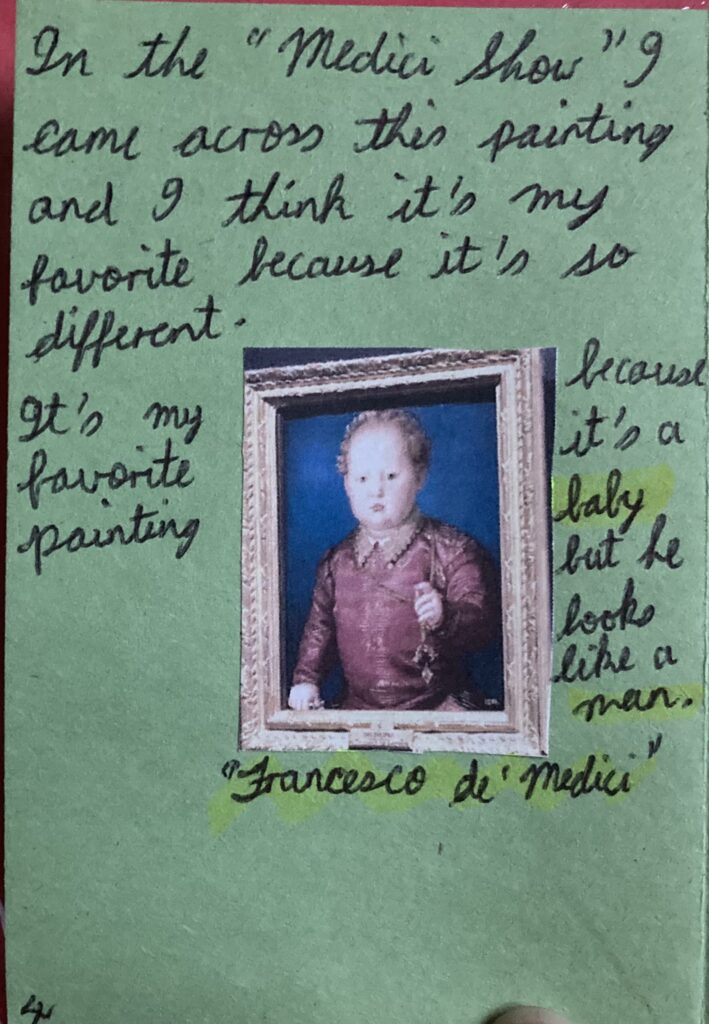 In the "Medici Show" I
came across this painting
and I think it's my
favorite because it's so
different.
It's my
favorite
painting
because
it's a
baby
but he
looks
like a
man.
"Francesco de' Medici"
4